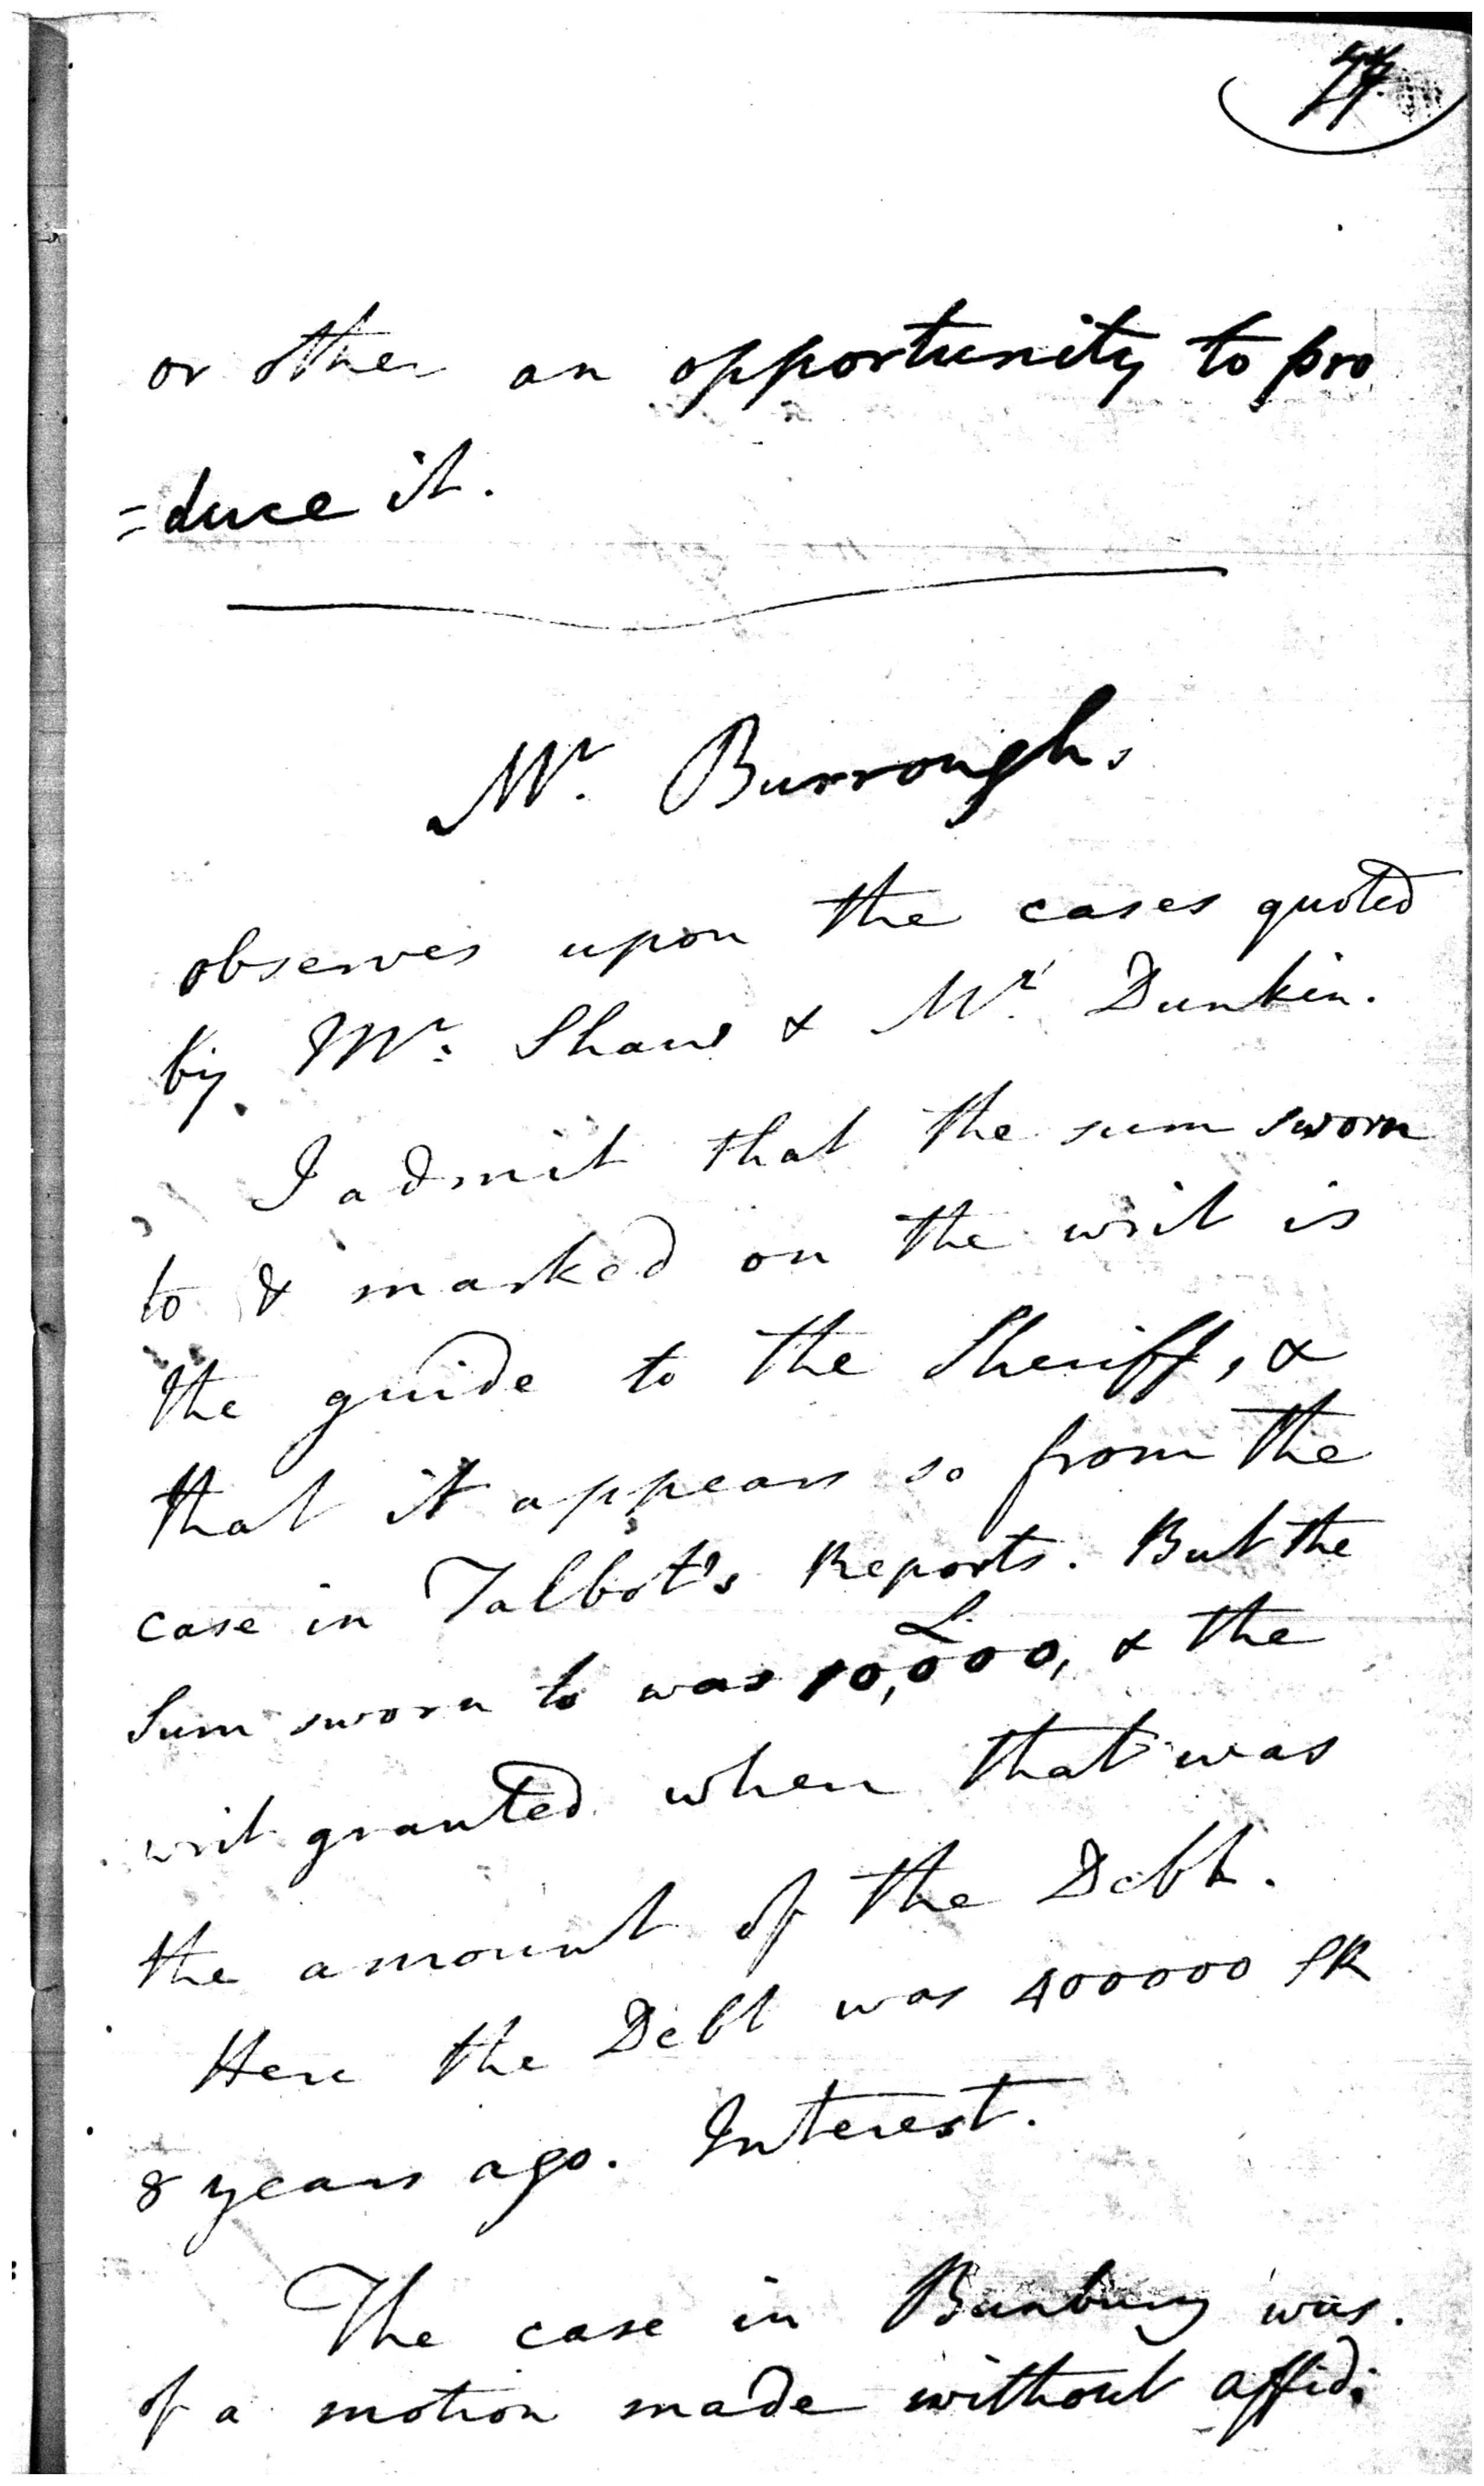 or other an opportunity to pro
=duce it.
Mr. Burroughs
observes upon the cases quoted
by Mr. Shaw & Mr. Dunkin.
I admit that the sum sworn
to & marked on the writ is
the guide to the Sheriff, &
that it appears so from the
case in Talbot's Reports. But the
Sum sworn to was 10,000£, & the
writ granted when that was
the amount of the Debt.
Here the Debt was 400000 SR
8 years ago. Interest.
The case in Bunbury was.
of a motion made without affid: